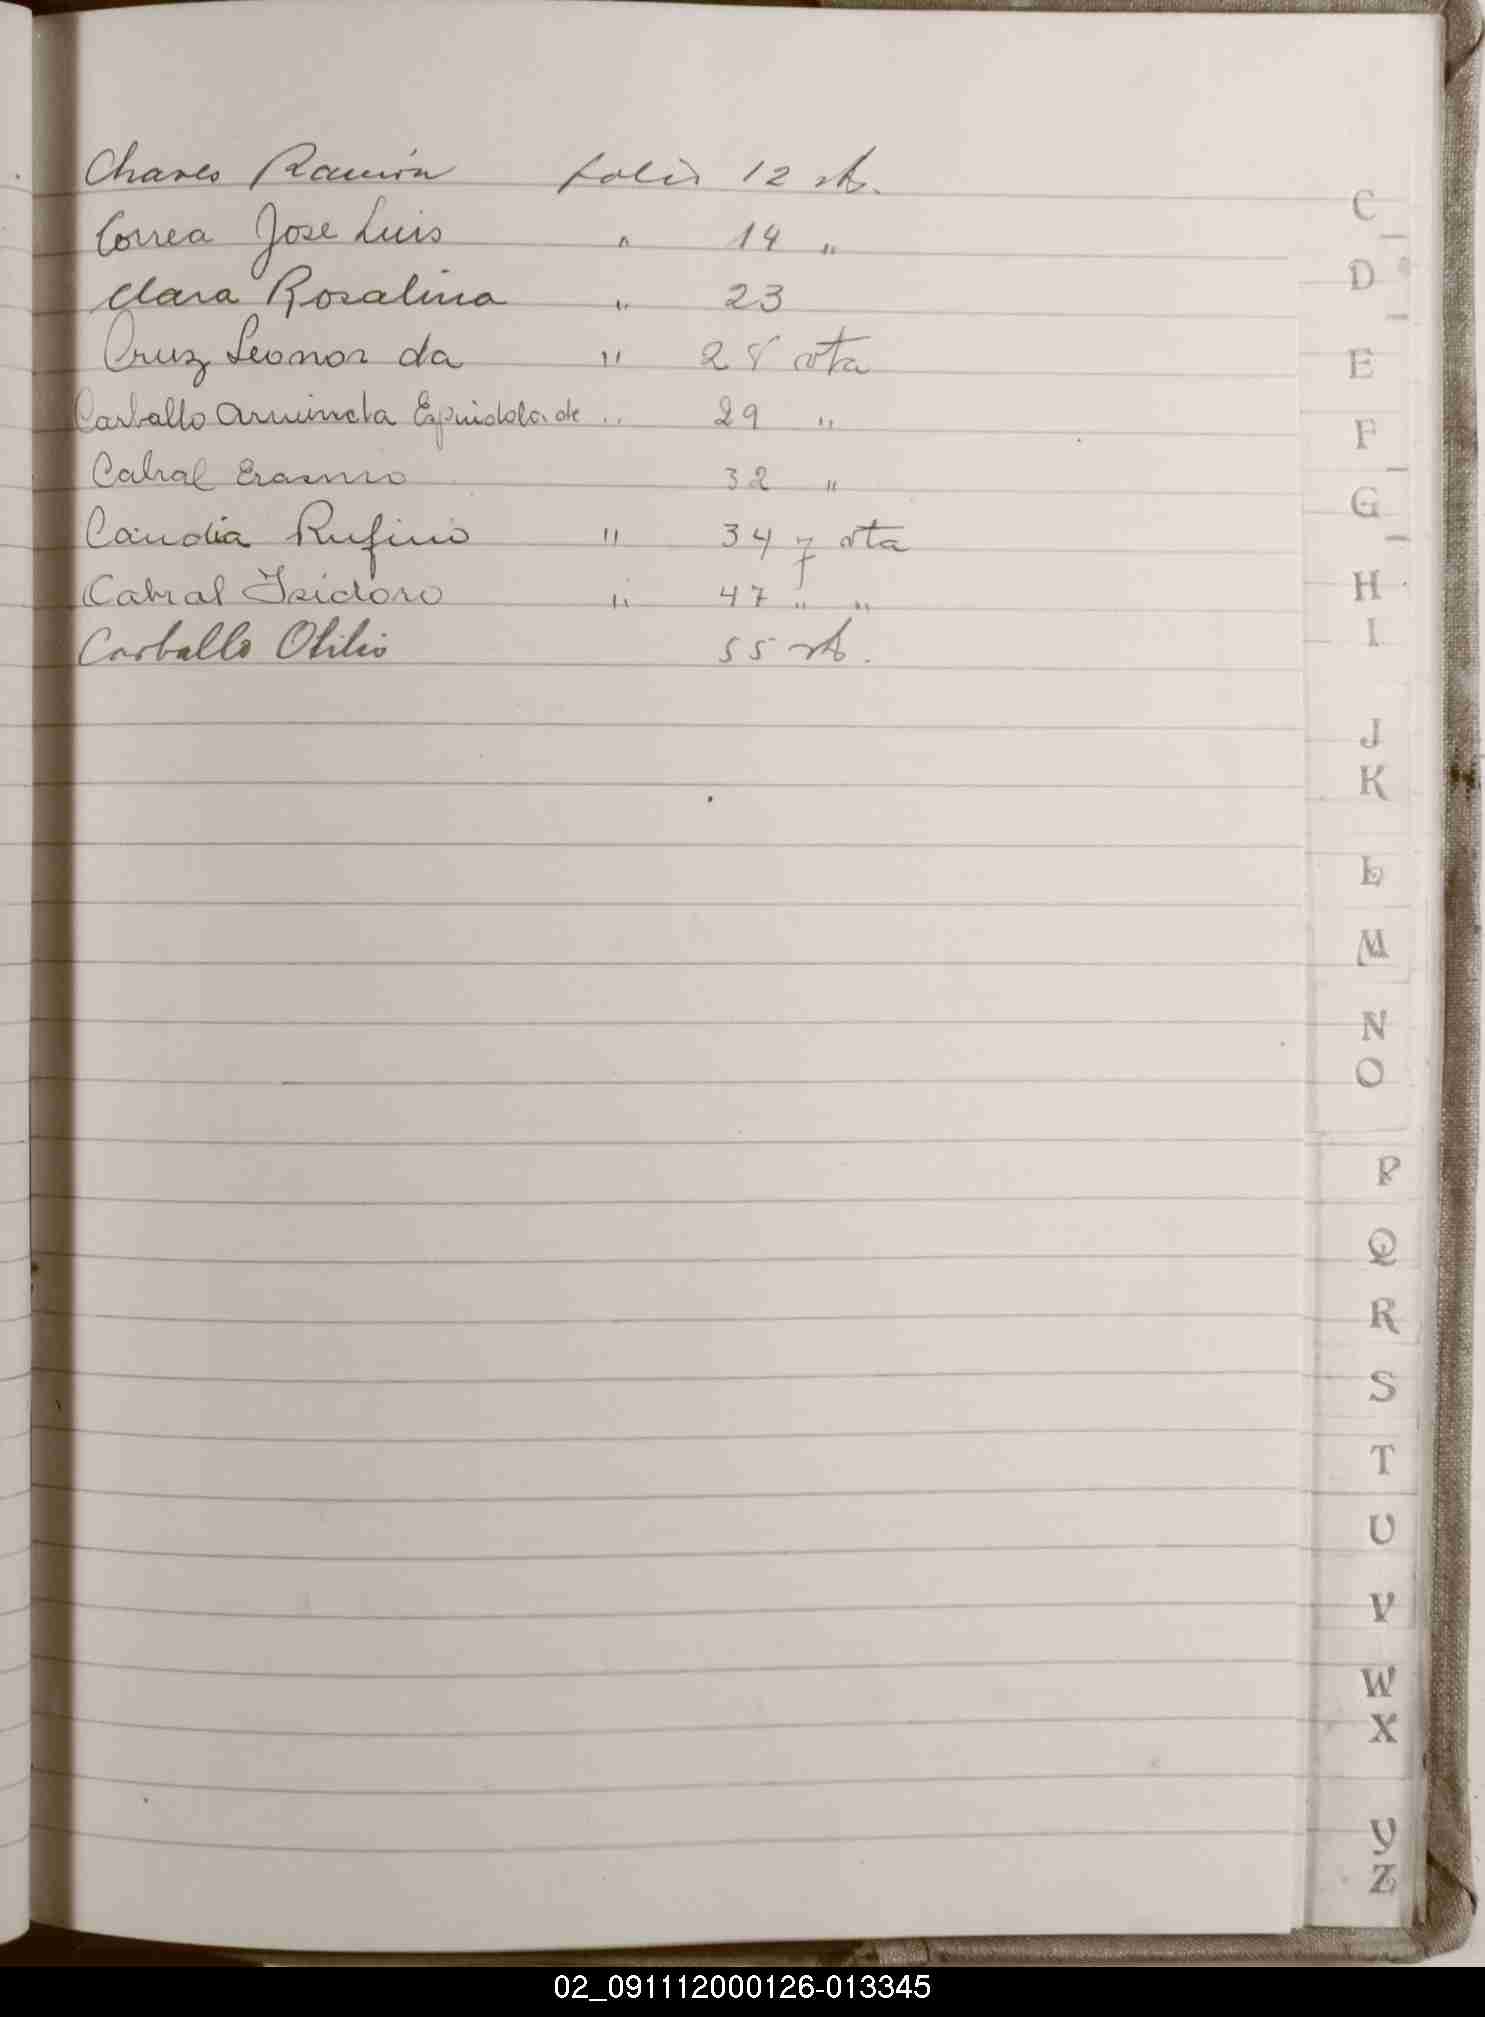 Chaves Ramón folio 12 vta.
Correa Jose Luis " 14 "
Clara Rosalina " 23
Cruz Leonor da " 28 vta
Carballo Arminda Espindola de " 29 "
Cabral Erasmo 32 "
Candia Rufino " 34 y vta
Cabral Isidoro " 47 " "
Carballo Otilio 55 vta.
C
D
E
F
G
H
I
J
K
L
M
N
O
P
Q
R
S
T
U
V
W
X
Y
Z
02_091112000126-013345